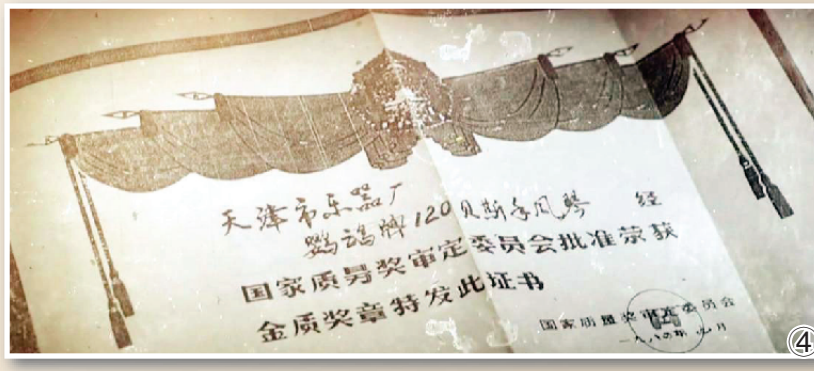 天津市乐器厂
鹦鹉牌120贝斯手风琴 经
国家质量奖审定委员会批准荣获
金质奖章特发此证书
国家质量奖审定委员会
一九八四年 月
④